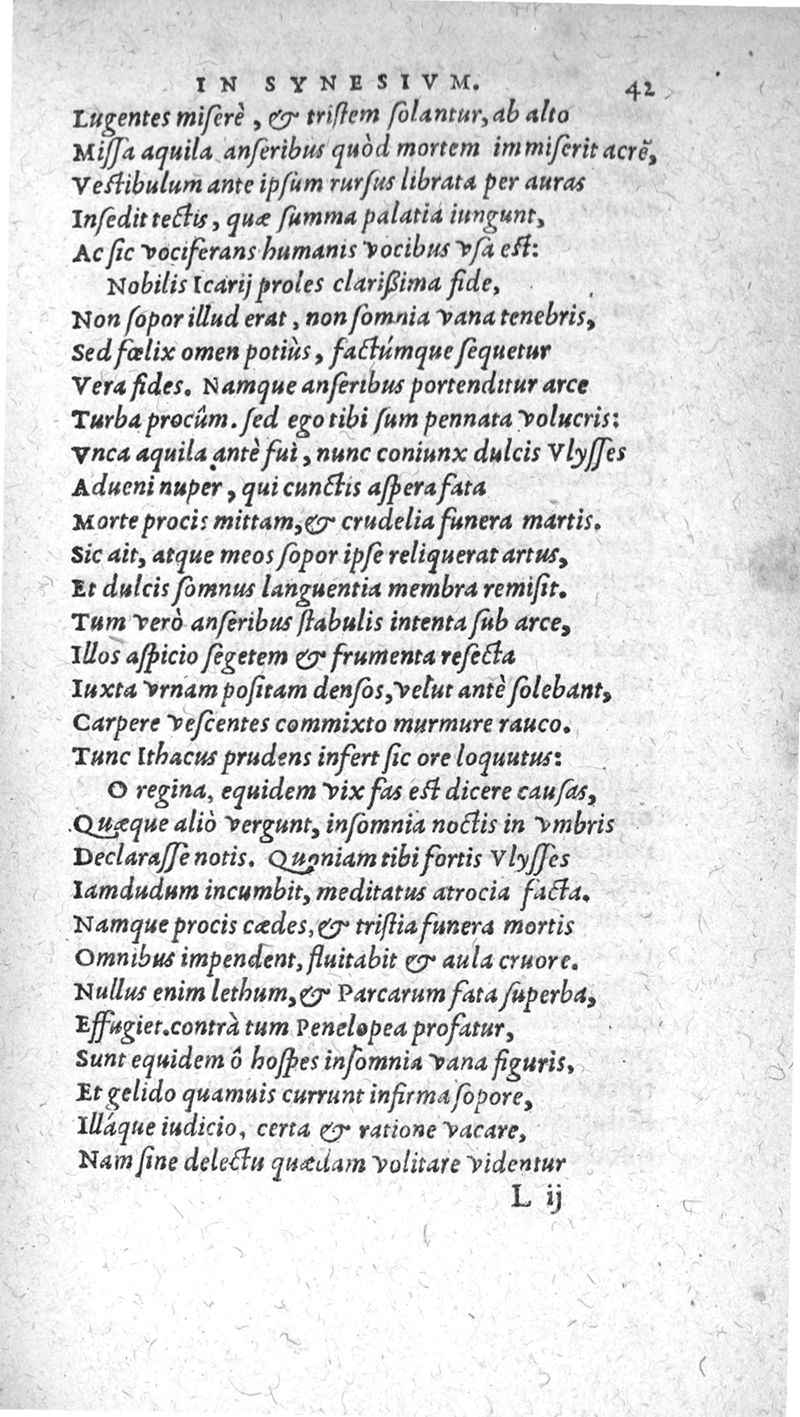 IN SYNESIVM. 42
Lugentes miserè, & tristem solantur, ab alto
Missa aquila anseribus quòd mortem immiserit acrē,
Vestibulum ante ipsum rursus librata per auras
Insedit tectis, quæ summa palatia iungunt,
Ac sic vociferans humanis vocibus vsa est:
Nobilis Icarij proles clarißima fide,
Non sopor illud erat, non somnia vana tenebris,
Sed fœlix omen potiùs, factúmque sequetur
Vera fides. Namque anseribus portenditur arce
Turba procûm. sed ego tibi sum pennata volucris:
Vnca aquila antè fui, nunc coniunx dulcis Vlysses
Adueni nuper, qui cunctis aspera fata
Morte procis mittam, & crudelia funera martis.
Sic ait, atque meos sopor ipse reliquerat artus,
Et dulcis somnus languentia membra remisit.
Tum verò anseribus stabulis intenta sub arce,
Illos aspicio segetem & frumenta resecta
Iuxta vrnam positam densos, velut antè solebant,
Carpere vescentes commixto murmure rauco.
Tunc Ithacus prudens infert sic ore loquutus:
O regina, equidem vix fas est dicere causas,
Quæque aliò vergunt, insomnia noctis in vmbris
Declarasse notis. Quoniam tibi fortis Vlysses
Iamdudum incumbit, meditatus atrocia facta.
Namque procis cædes, & tristia funera mortis
Omnibus impendent, fluitabit & aula cruore.
Nullus enim lethum, & Parcarum fata superba,
Effugiet. contrà tum Penelopea profatur,
Sunt equidem ô hospes insomnia vana figuris,
Et gelido quamuis currunt infirma sopore,
Illáque iudicio, certa & ratione vacare,
Nam sine delectu quædam volitare videntur
L ij